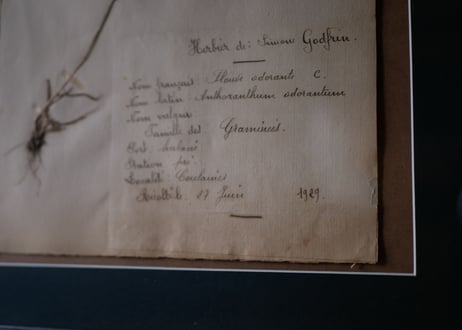 Herbier de: Simone Godfrin.
Nom français: Flouve odorante C.
Nom latin: Anthoxanthum odorantium
Nom vulgaire
Famille des Graminées.
Port: herbacé
Station pré.
Localité: Coulaines
Récolté le 17 Juin 1929.